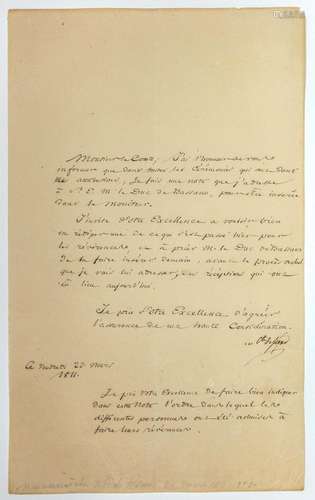 Monsieur le Comte, J'ai l'honneur de vous
informer que dans toutes les Cérémonies qui me sont
je fais une note que j'adresse
à S. E. M. le Duc de Bassano, pour être insérée
dans le Moniteur.
J'invite Votre Excellence à vouloir bien
en rédiger une de ce qui s'est passé hier pour
les révérences, et à prier M. le Duc de Bassano
de la faire insérer demain, avant le procès verbal
que je vais lui adresser, des réceptions qui ont
eu lieu aujourd'hui.
Je prie Votre Excellence d'agréer
l'assurance de ma haute Considération.
Ce 23 Mars
1811.
Je prie Votre Excellence de faire bien indiquer
dans cette Note l'ordre dans lequel les
différentes personnes ont été admises à
faire leurs révérences.